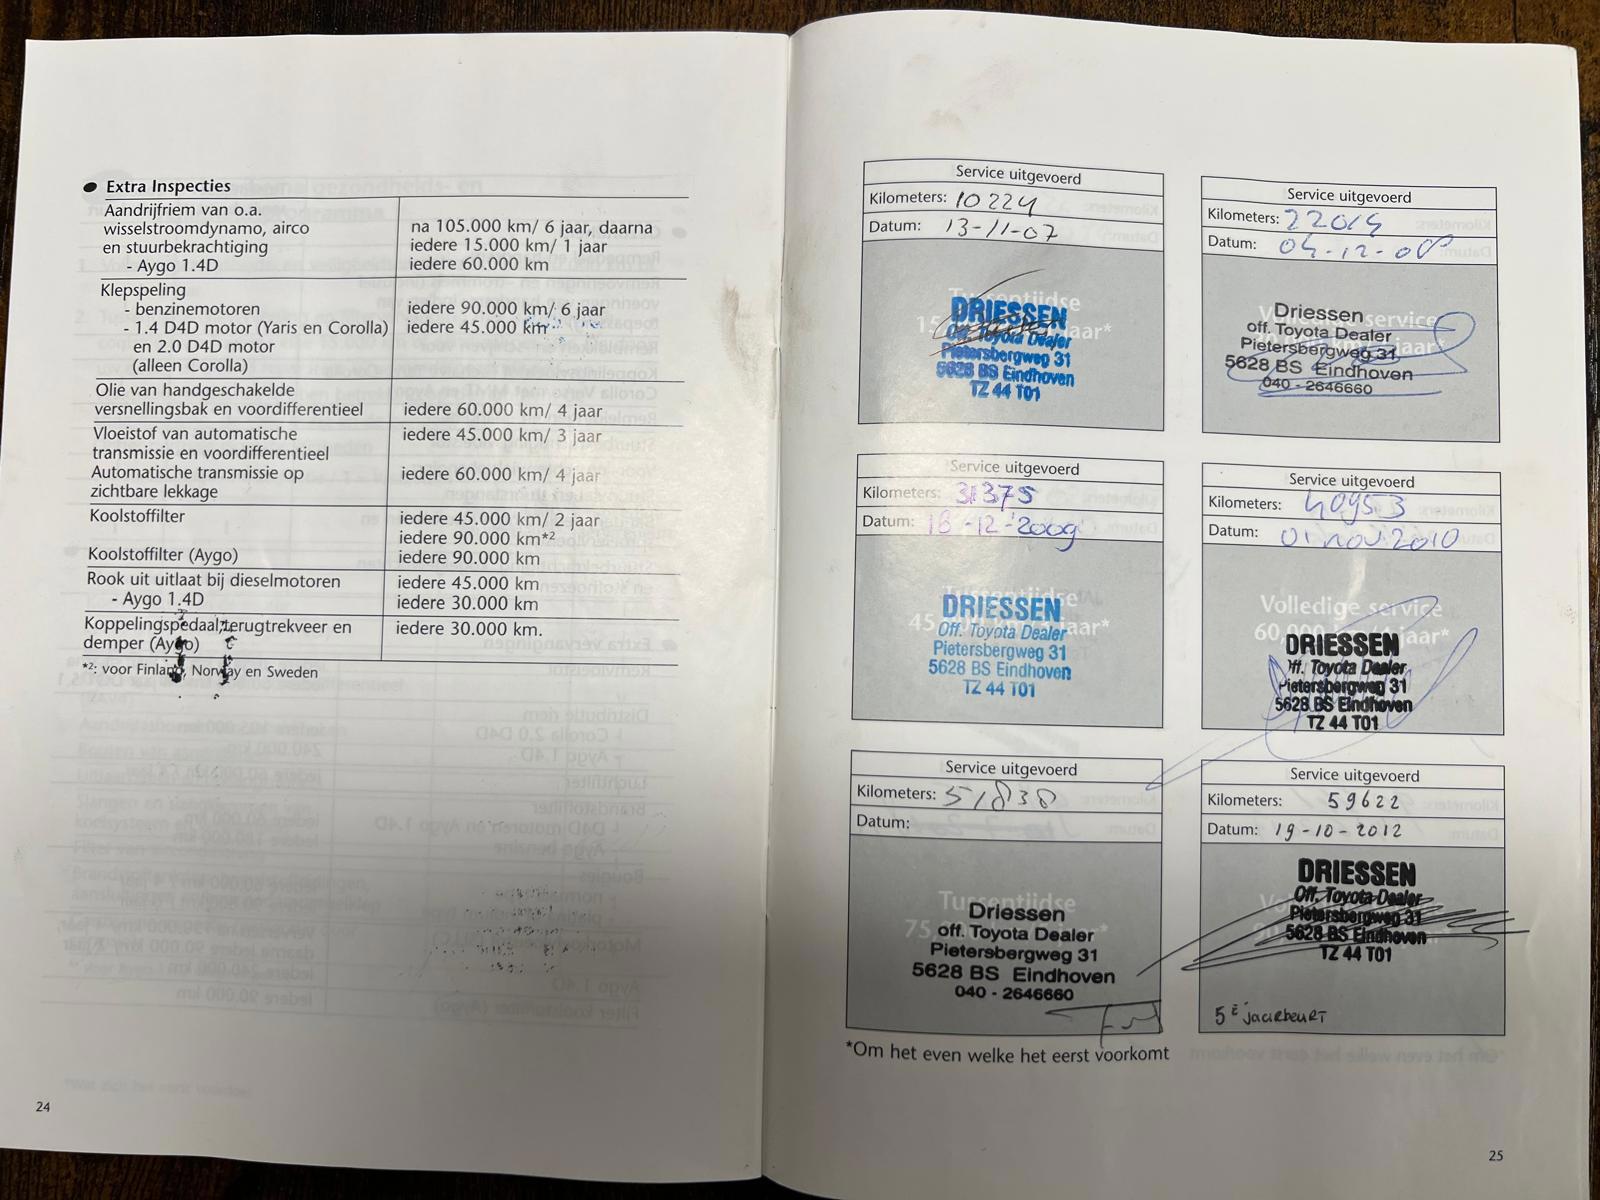 ● Extra Inspecties
Aandrijfriem van o.a.
wisselstroomdynamo, airco na 105.000 km/ 6 jaar, daarna
en stuurbekrachtiging iedere 15.000 km/ 1 jaar
- Aygo 1.4D iedere 60.000 km
Klepspeling
- benzinemotoren iedere 90.000 km/ 6 jaar
- 1.4 D4D motor (Yaris en Corolla) iedere 45.000 km
en 2.0 D4D motor
(alleen Corolla)
Olie van handgeschakelde
versnellingsbak en voordifferentieel iedere 60.000 km/ 4 jaar
Vloeistof van automatische iedere 45.000 km/ 3 jaar
transmissie en voordifferentieel
Automatische transmissie op iedere 60.000 km/ 4 jaar
zichtbare lekkage
Koolstoffilter iedere 45.000 km/ 2 jaar
iedere 90.000 km*2
Koolstoffilter (Aygo) iedere 90.000 km
Rook uit uitlaat bij dieselmotoren iedere 45.000 km
- Aygo 1.4D iedere 30.000 km
Koppelingspedaal,terugtrekveer en iedere 30.000 km.
demper (Aygo)
*2: voor Finland, Norway en Sweden
24
Service uitgevoerd
Kilometers: 10224
Datum: 13-11-07
Tussentijdse
DRIESSEN
off. Toyota Dealer
Pietersbergweg 31
5628 BS Eindhoven
TZ 44 T01
Service uitgevoerd
Kilometers: 22014
Datum: 04-12-08
Volledige service
Driessen
off. Toyota Dealer
Pietersbergweg 31
5628 BS Eindhoven
040 - 2646660
Service uitgevoerd
Kilometers: 31375
Datum: 18-12-2009
Tussentijdse
DRIESSEN
Off. Toyota Dealer
Pietersbergweg 31
5628 BS Eindhoven
TZ 44 T01
Service uitgevoerd
Kilometers: 40953
Datum: 01 nov 2010
Volledige service
60.000 km/4 jaar*
DRIESSEN
Off. Toyota Dealer
Pietersbergweg 31
5628 BS Eindhoven
TZ 44 T01
Service uitgevoerd
Kilometers: 51838
Datum:
Tussentijdse
Driessen
off. Toyota Dealer
Pietersbergweg 31
5628 BS Eindhoven
040 - 2646660
Service uitgevoerd
Kilometers: 59622
Datum: 19-10-2012
DRIESSEN
Off. Toyota Dealer
Pietersbergweg 31
5628 BS Eindhoven
TZ 44 T01
5e jaarbeurt
*Om het even welke het eerst voorkomt
25